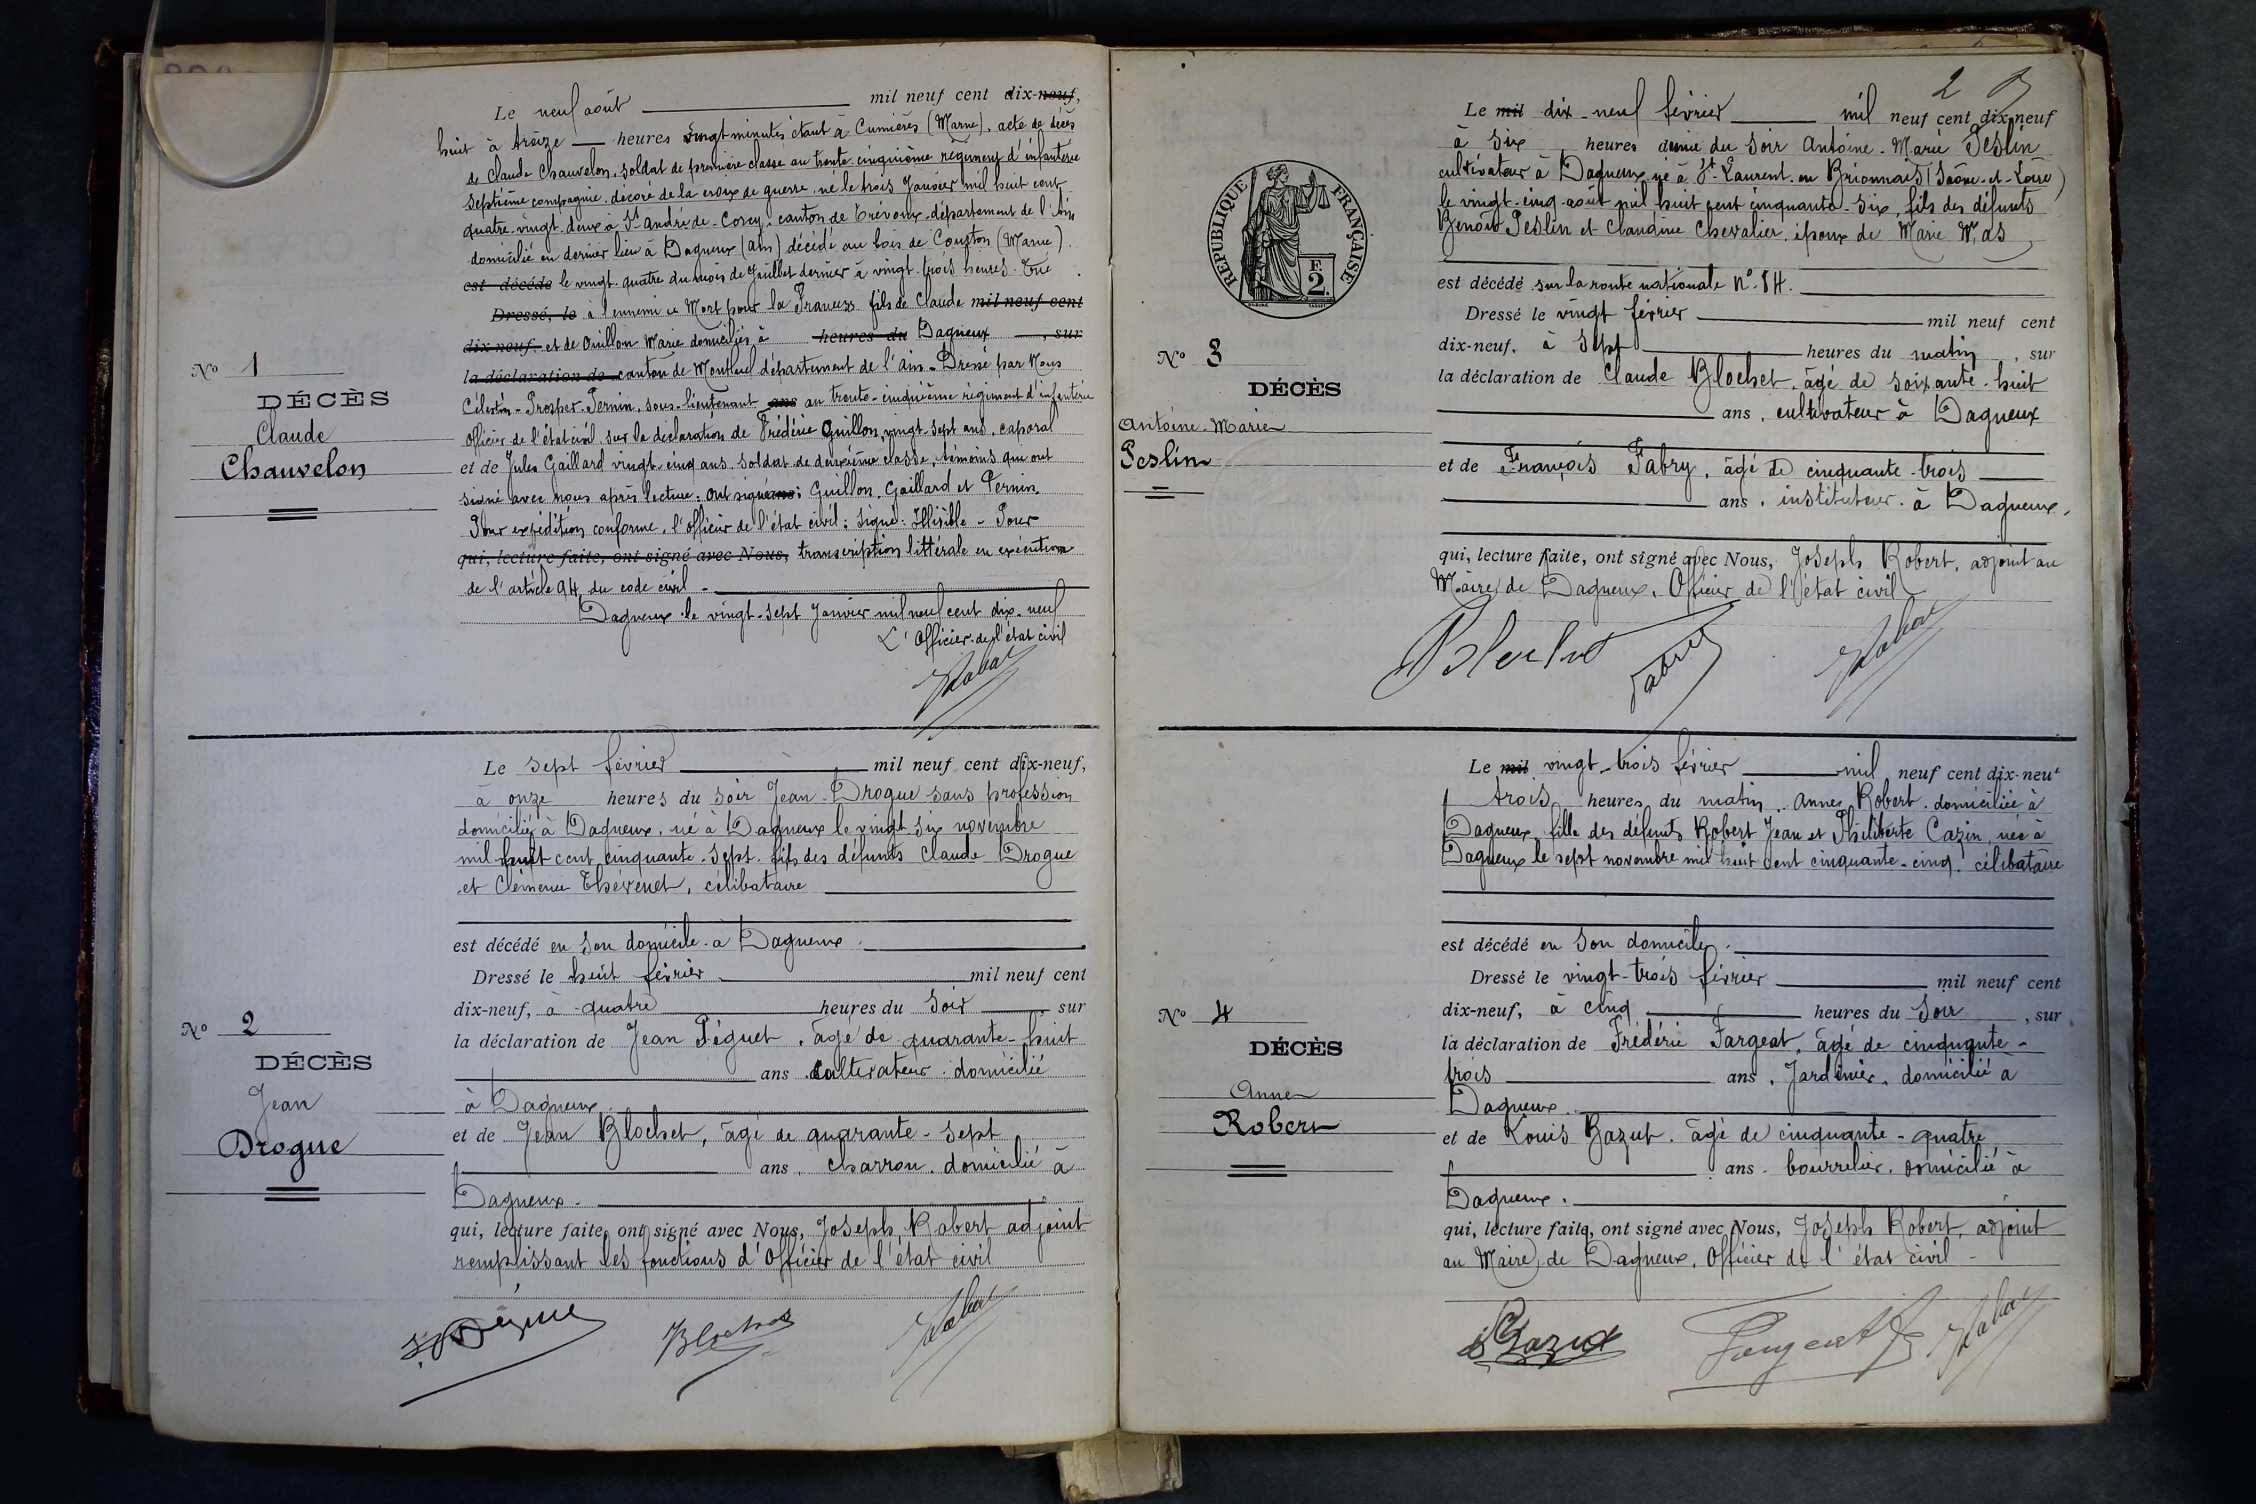 Le neuf août mil neuf cent dix-neuf,
huit à treize heures vingt minutes étant à Cumières (Marne), acte de décès
de Claude Chauvelon, soldat de première classe au trente cinquième régiment d'infanterie
septième compagnie, décoré de la croix de guerre, né le trois Janvier mil huit cent
quatre-vingt-deux à St André-de-Corcy, canton de Trévoux, département de l'Ain
domicilié en dernier lieu à Dagneux (Ain) décédé au bois de Courton (Marne).
est décédé le vingt-quatre du mois de Juillet dernier à vingt-trois heures. Tué
Dressé, le à l'ennemi "Mort pour la France" fils de Claude mil neuf cent
dix neuf, et de Guillon Marie domiciliés à heures du Dagneux , sur
la déclaration de canton de Montluel département de l'Ain - Dressé par Nous
Célestin-Prosper Pernin, sous-lieutenant ans au trente-cinquième régiment d'infanterie
officier de l'état civil, sur la déclaration de Frédéric Guillon, vingt-sept ans, caporal
et de Jules Gaillard vingt-cinq ans, soldat de deuxième classe, témoins qui ont
signé avec nous après lecture. Ont signé ans: Guillon, Gaillard et Pernin.
Pour expédition conforme, l'officier de l'état civil: Signé: Illisible - Pour
qui, lecture faite, ont signé avec Nous, transcription littérale en exécution
de l'article 94 du code civil -
Dagneux le vingt-sept Janvier mil neuf cent dix-neuf
L'Officier de l'état civil
JRobert
No 1
DÉCÈS
Claude
Chauvelon
Le sept février mil neuf cent dix-neuf,
à onze heures du soir Jean Drogue sans profession
domicilié à Dagneux, né à Dagneux le vingt six novembre
mil huit cent cinquante-sept, fils des défunts Claude Drogue
et Clémence Thévenet, célibataire
est décédé en son domicile à Dagneux.
Dressé le huit février mil neuf cent
dix-neuf, à quatre heures du soir sur
la déclaration de Jean Péguet, âgé de quarante-huit
ans cultivateur domicilié
à Dagneux.
et de Jean Blochet, âgé de quarante-sept
ans, charron, domicilié à
Dagneux.
qui, lecture faite, ont signé avec Nous, Joseph Robert adjoint
remplissant les fonctions d'Officier de l'état civil
Blochet
JRobert
No 2
DÉCÈS
Jean
Drogue
2
RÉPUBLIQUE FRANÇAISE
F.
2.
Le mil dix-neuf février mil neuf cent dix neuf
à six heures demie du soir Antoine-Marie Peslin
cultivateur à Dagneux né à St Laurent-en Brionnais (Saône-et-Loire)
le vingt-cinq août mil huit cent cinquante-six, fils des défunts
Benoît Peslin et Claudine Chevalier, époux de Marie Mas
est décédé sur la route nationale No 84.
Dressé le vingt février mil neuf cent
dix-neuf, à sept heures du matin, sur
la déclaration de Claude Blochet, âgé de soixante-huit
ans, cultivateur à Dagneux
et de François Fabry, âgé de cinquante-trois
ans, instituteur à Dagneux,
qui, lecture faite, ont signé avec Nous, Joseph Robert, adjoint au
Maire de Dagneux, Officier de l'état civil
Blochet
Fabry
JRobert
No 3
DÉCÈS
Antoine-Marie
Peslin
Le mil vingt-trois février mil neuf cent dix-neuf
trois heures du matin, Anne Robert, domiciliée à
Dagneux, fille des défunts Robert Jean et Philiberte Cazin, née à
Dagneux le sept novembre mil huit cent cinquante-cinq, célibataire
est décédé en son domicile.
Dressé le vingt-trois février mil neuf cent
dix-neuf, à cinq heures du soir, sur
la déclaration de Frédéric Fargeat, âgé de cinquante-
trois ans, Jardinier, domicilié à
Dagneux.
et de Louis Bazut, âgé de cinquante-quatre
ans, bourrelier, domicilié à
Dagneux.
qui, lecture faite, ont signé avec Nous, Joseph Robert, adjoint
au Maire de Dagneux, Officier de l'état civil -
Bazut
Fargeat
JRobert
No 4
DÉCÈS
Anne
Robert